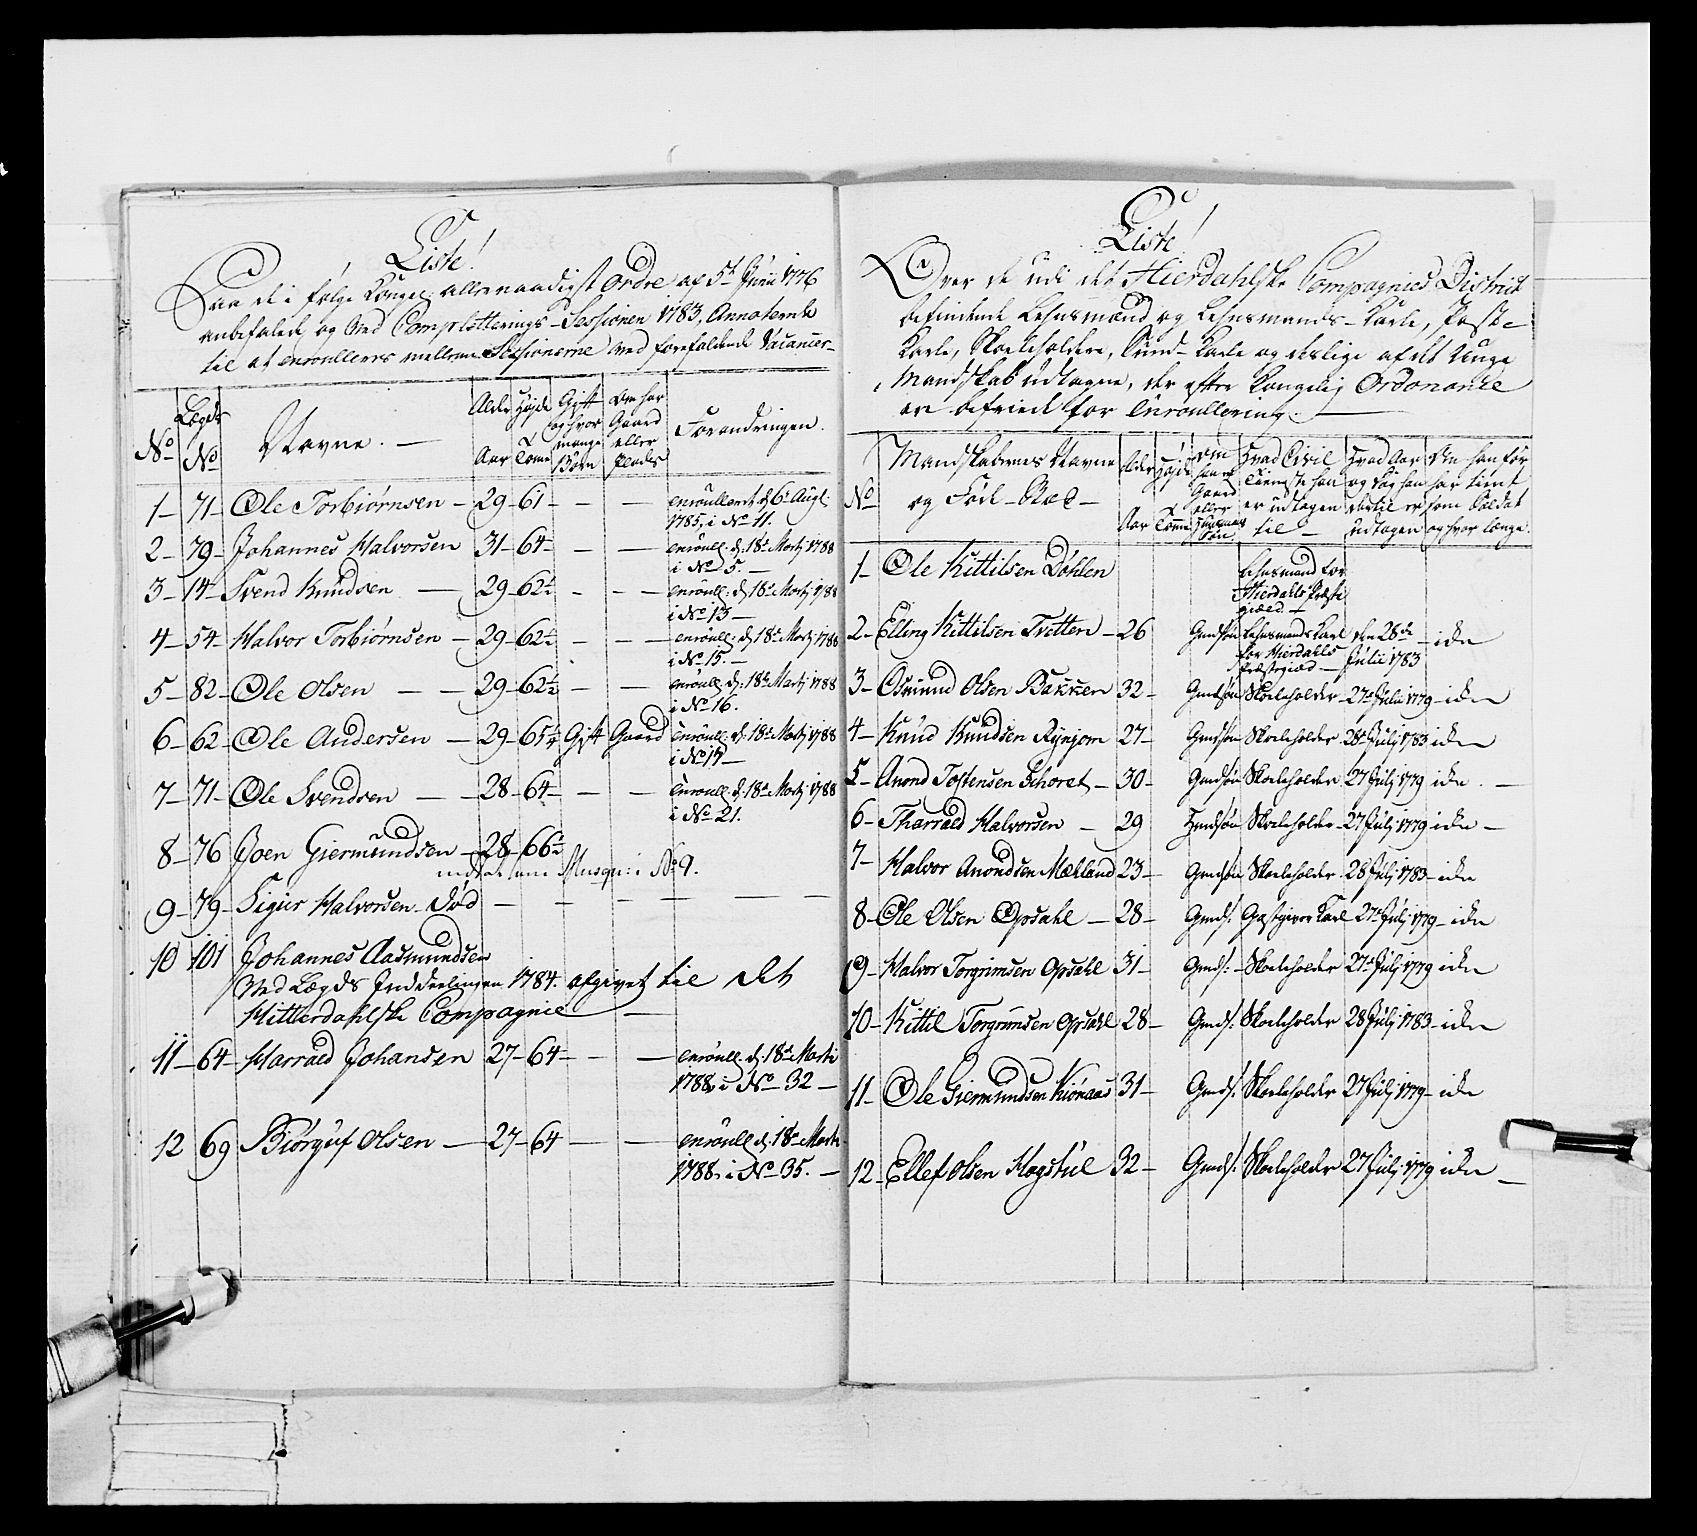 Liste!
Paa de i følge Kongel: allernaadigst Ordre af 5t Junii 1776
anbefalede og ved Completterings-Sessionen 1783, Annoterede
til at enroulleres mellem Sessionerne ved forefaldende Vacancer-
No
Lægds No
Navne. —
Alder Aar
Højde Tomer
Gift og hvor mange Børn
Om har Gaard eller Plads
Forandringen.
1- 71- Ole Torbiørnsen - 29- 61- - - enroulleret d: 6t Augt: 1785, i No 11.
2- 79- Johannes Halvorsen 31- 64- - - enroull: d: 18t Martj 1788 i No 5. -
3- 14- Svend Knudsen - 29- 62½ - - enroull: d: 18t Martj 1788 i No 13 -
4- 54- Halvor Torbiørnsen - 29- 62½ - - enroull: d: 18t Martj 1788 i No 15. -
5- 82- Ole Olsen - - 29- 62½ - - enroull: d: 18t Martj 1788 i No 16.
6- 62- Ole Andersen - 29- 65¼ Gift Gaard enroull: d: 18t Martj 1788 i No
7- 71- Ole Svendsen - - 28- 64- - - enroull: d: 18t Martj 1788 i No 21.
8- 76 Joen Giermundsen - 28- 66½
indsat som Musqu: i No 9.
9- 79- Sigur Halvorsen - Død - - - - - -
10 101 Johannes Aasmundsen
Ved Lægds Inddeelingen 1784. afgivet til det
Hitterdahlske Compagnie -
11- 64- Harraed Johansen 27- 64- - - enroull: d: 18t Marti 1788 i No 32 -
12 69 Biørguf Olsen - 27- 64 - - enroull: d: 18t Marti 1788. i No 35. -
Liste!
Over de udi det Hierdahlske Compagnies District
befindende Lehnsmænd og Lehnsmands-Karle, Post-
Karle, Skoleholdere, Sund-Karle og deslige af det Unge
Mandskab udtagne, der efter Kongelig Ordonance
ere befriede for Enroullering. —
No
Mandskabernes Navne og Føde-Sted -
Alder Aar
Højde Tomer
Om han er Gaard eller Huusmands Søn
Hvad Civil Tieneste han er udtagen til -
Hvad Aar og Dag han dertil er udtagen
Om han før har tient som Soldat og hvor længe.
1- Ole Kittilsen Døhlen Lehnsmand for Hierdahls Præstegield -
2- Elling Kittilsen Tvetten - 26 Gmdsøn Lehnsmands Karl for Hierdahls Præstegield - den 28de Julii 1783 - iche
3- Osmund Olsen Bakken 32- Gmdsøn Skoleholder - 27t Julii 1779 - iche
4- Knud Knudsen Rynjom 27- Gmdsøn Skoleholder 28t Julj 1783 iche
5- Anond Tostensen Schoret - 30- Gmdsøn Skoleholder 27 Julj 1779 iche. -
6- Tharraed Halvorsen - 29 Hmdsøn Skoleholder - 27 Julj 1779 iche -
7- Halvor Anondsen Mælland 23- Gmdsøn Skoleholder - 28 Julj 1783 - iche
8- Ole Olsen Opdahl - 28- Gmds: Gæstgiver Karl 27t Julj 1779 - iche
9- Halvor Torgrimsen Opdahl 31- Gmds: - Skoleholder 27t Julj 1779 iche
10- Kittil Torgrimsen Opdahl 28- Gmds: Skoleholder 28 Julj 1783 - iche
11- Ole Giermundsen Kiønaas 31- Gmds: Skoleholder 27 Julj 1779 - iche
12- Ellef Olsen Hogstul 32- Gmds: Skoleholder 27 Julj 1779 iche -